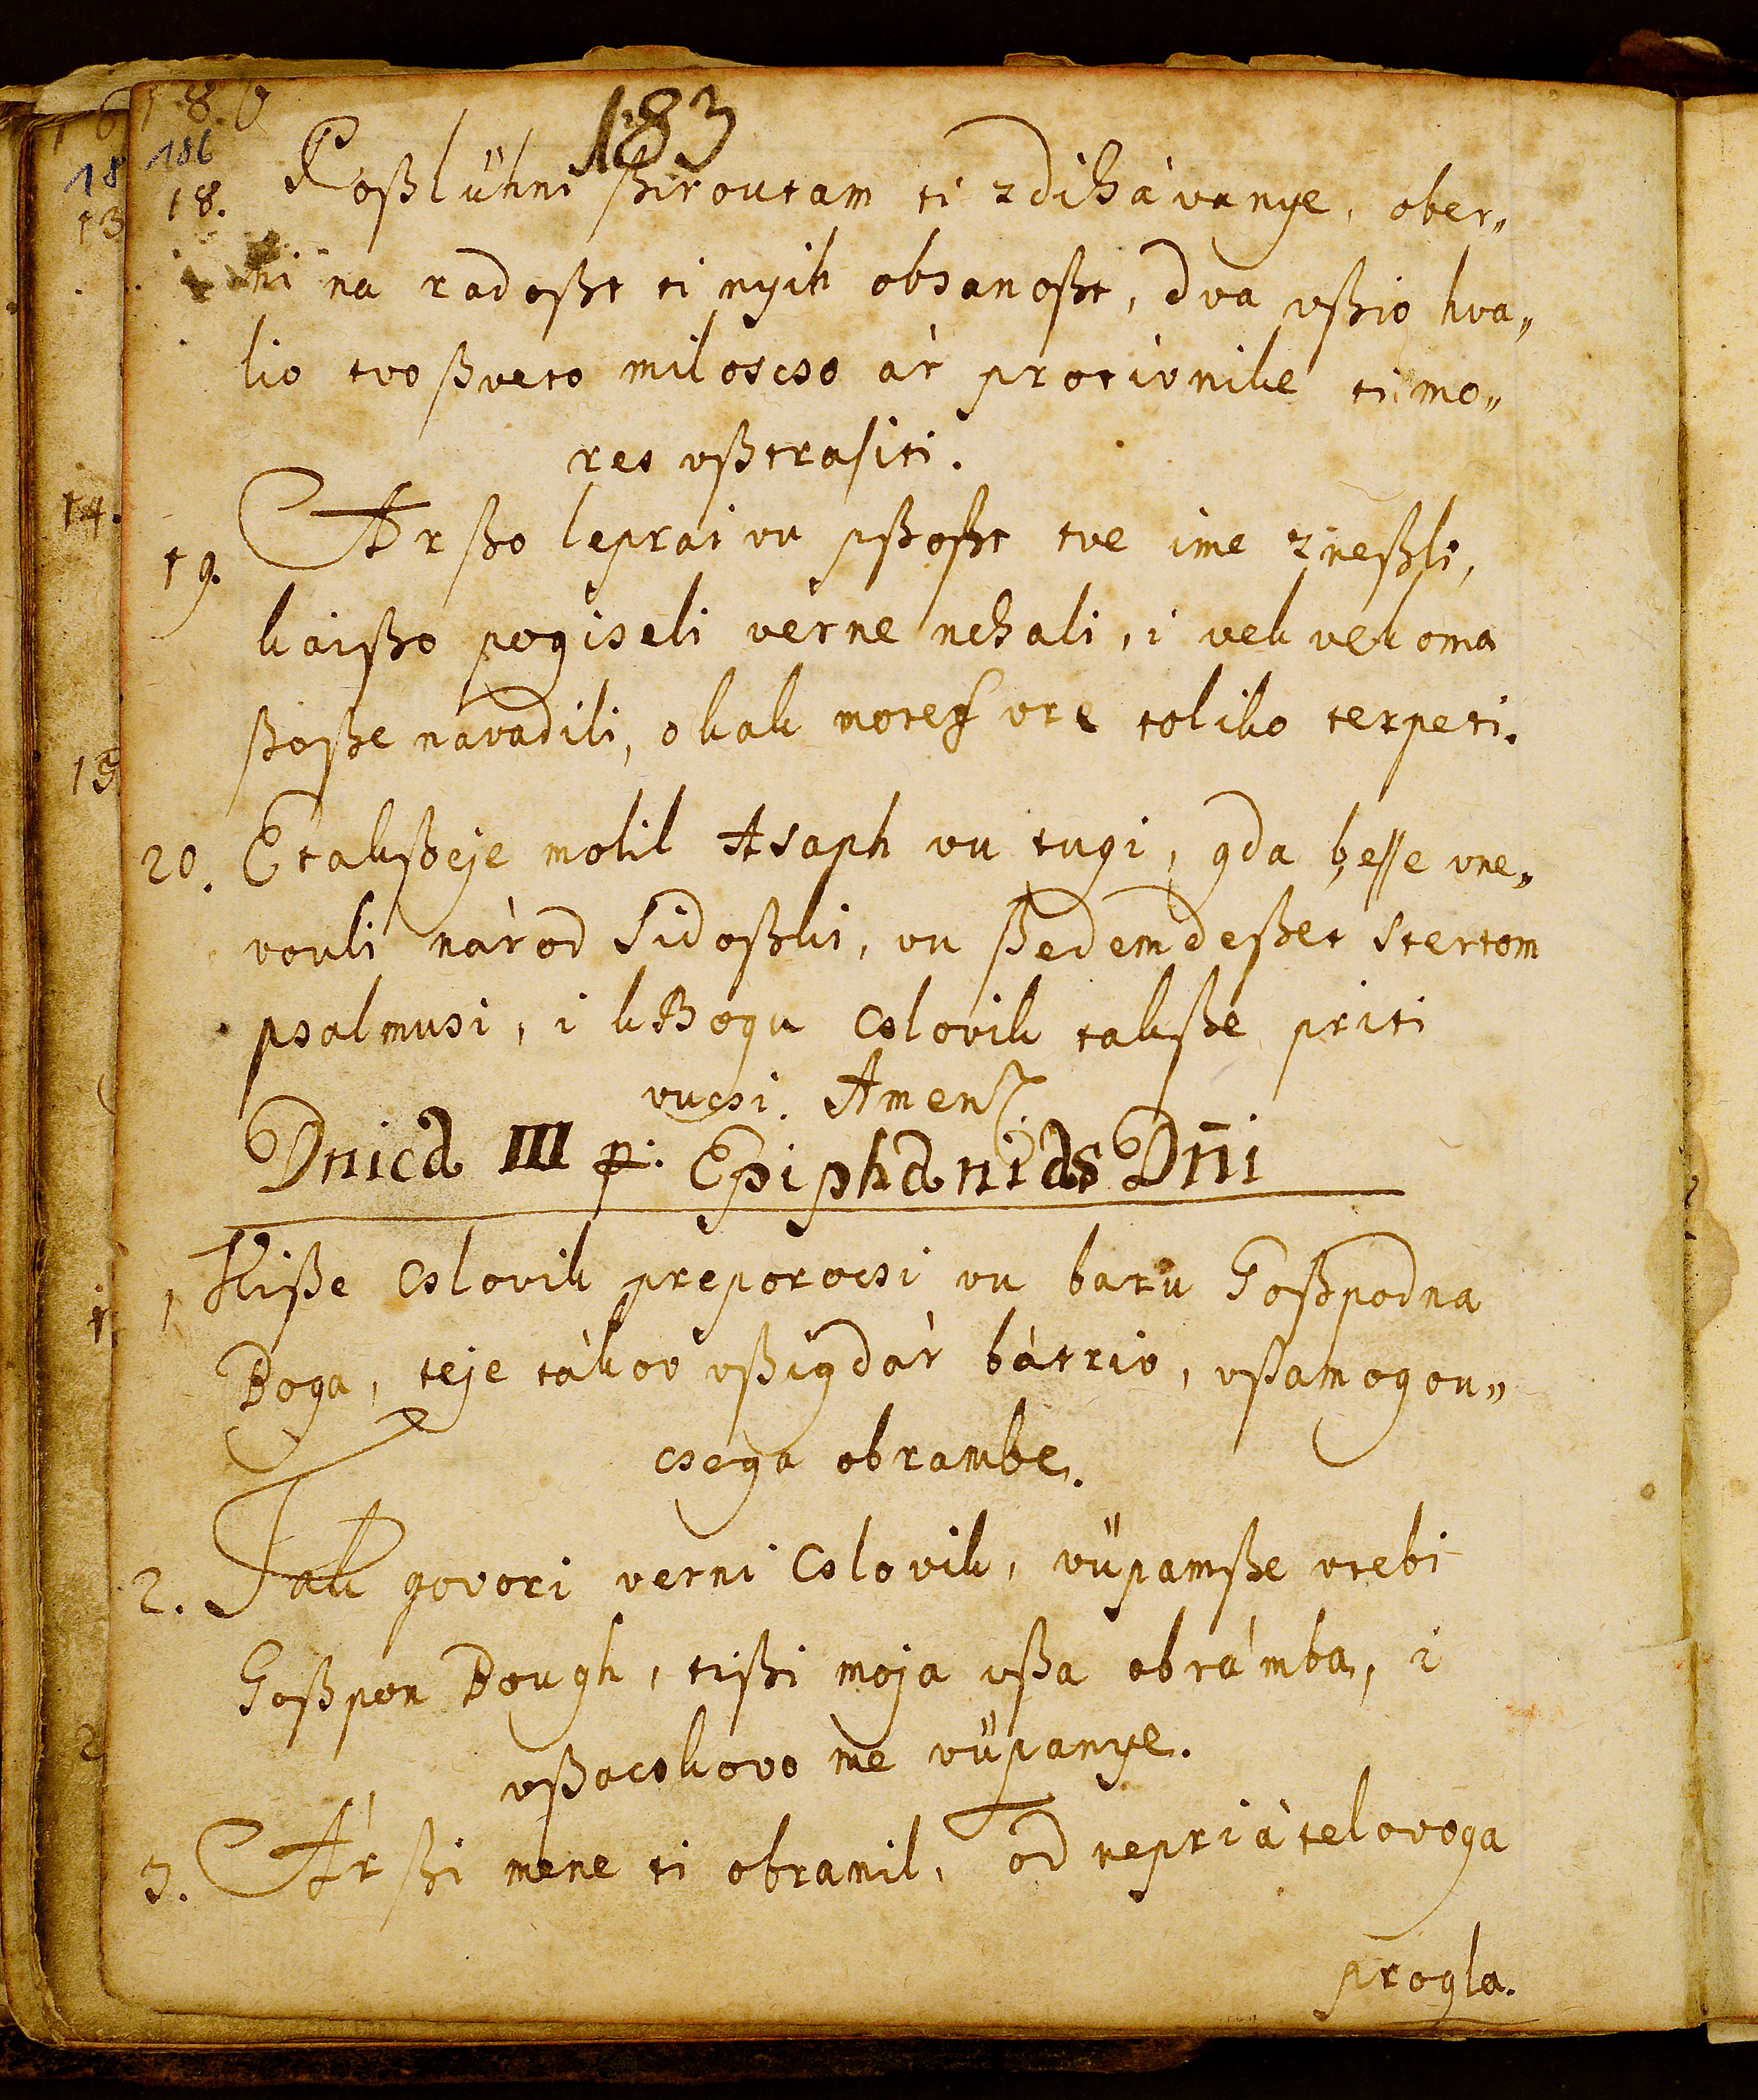 183
186
18. Poßlühni ßiroutam ti zdihávanye, ober„
ni na radoßt ti nyih obsanoßt, dva vßio hva„
lio tvo ßveto miloscso ár protivnike ti mo„
res vßtrasiti.
19. Ár ßo leprai vu pßoßt tve ime zneßli,
kaißo pogiseli verne nehali, i vek vekoma
ßoße navadili, o kak mores vre toliko terpeti.
20. Etakßeje molil Asaph vu tugi, gda besse vne„
vouli národ Sidoßki, vu ßedemdeßet stertom
psalmusi, i k Bogu cslovik takße priti
vucsi. Amen.
Dnica III p: Epiphanias Dn̄i
1 Kiße cslovik preporocsi vu baru Goßpodna
Boga, teje tákov vßigdár bátriv, vßamogou„
csega obrambe.
2. Tak govori verni cslovik, vüpamße vtebi
Goßpon Bough, tißi moja vßa obrámba, i
vßacskovo me vüpanye.
3. Ár ßi mene ti obranil, od nepriátelovoga
progla.